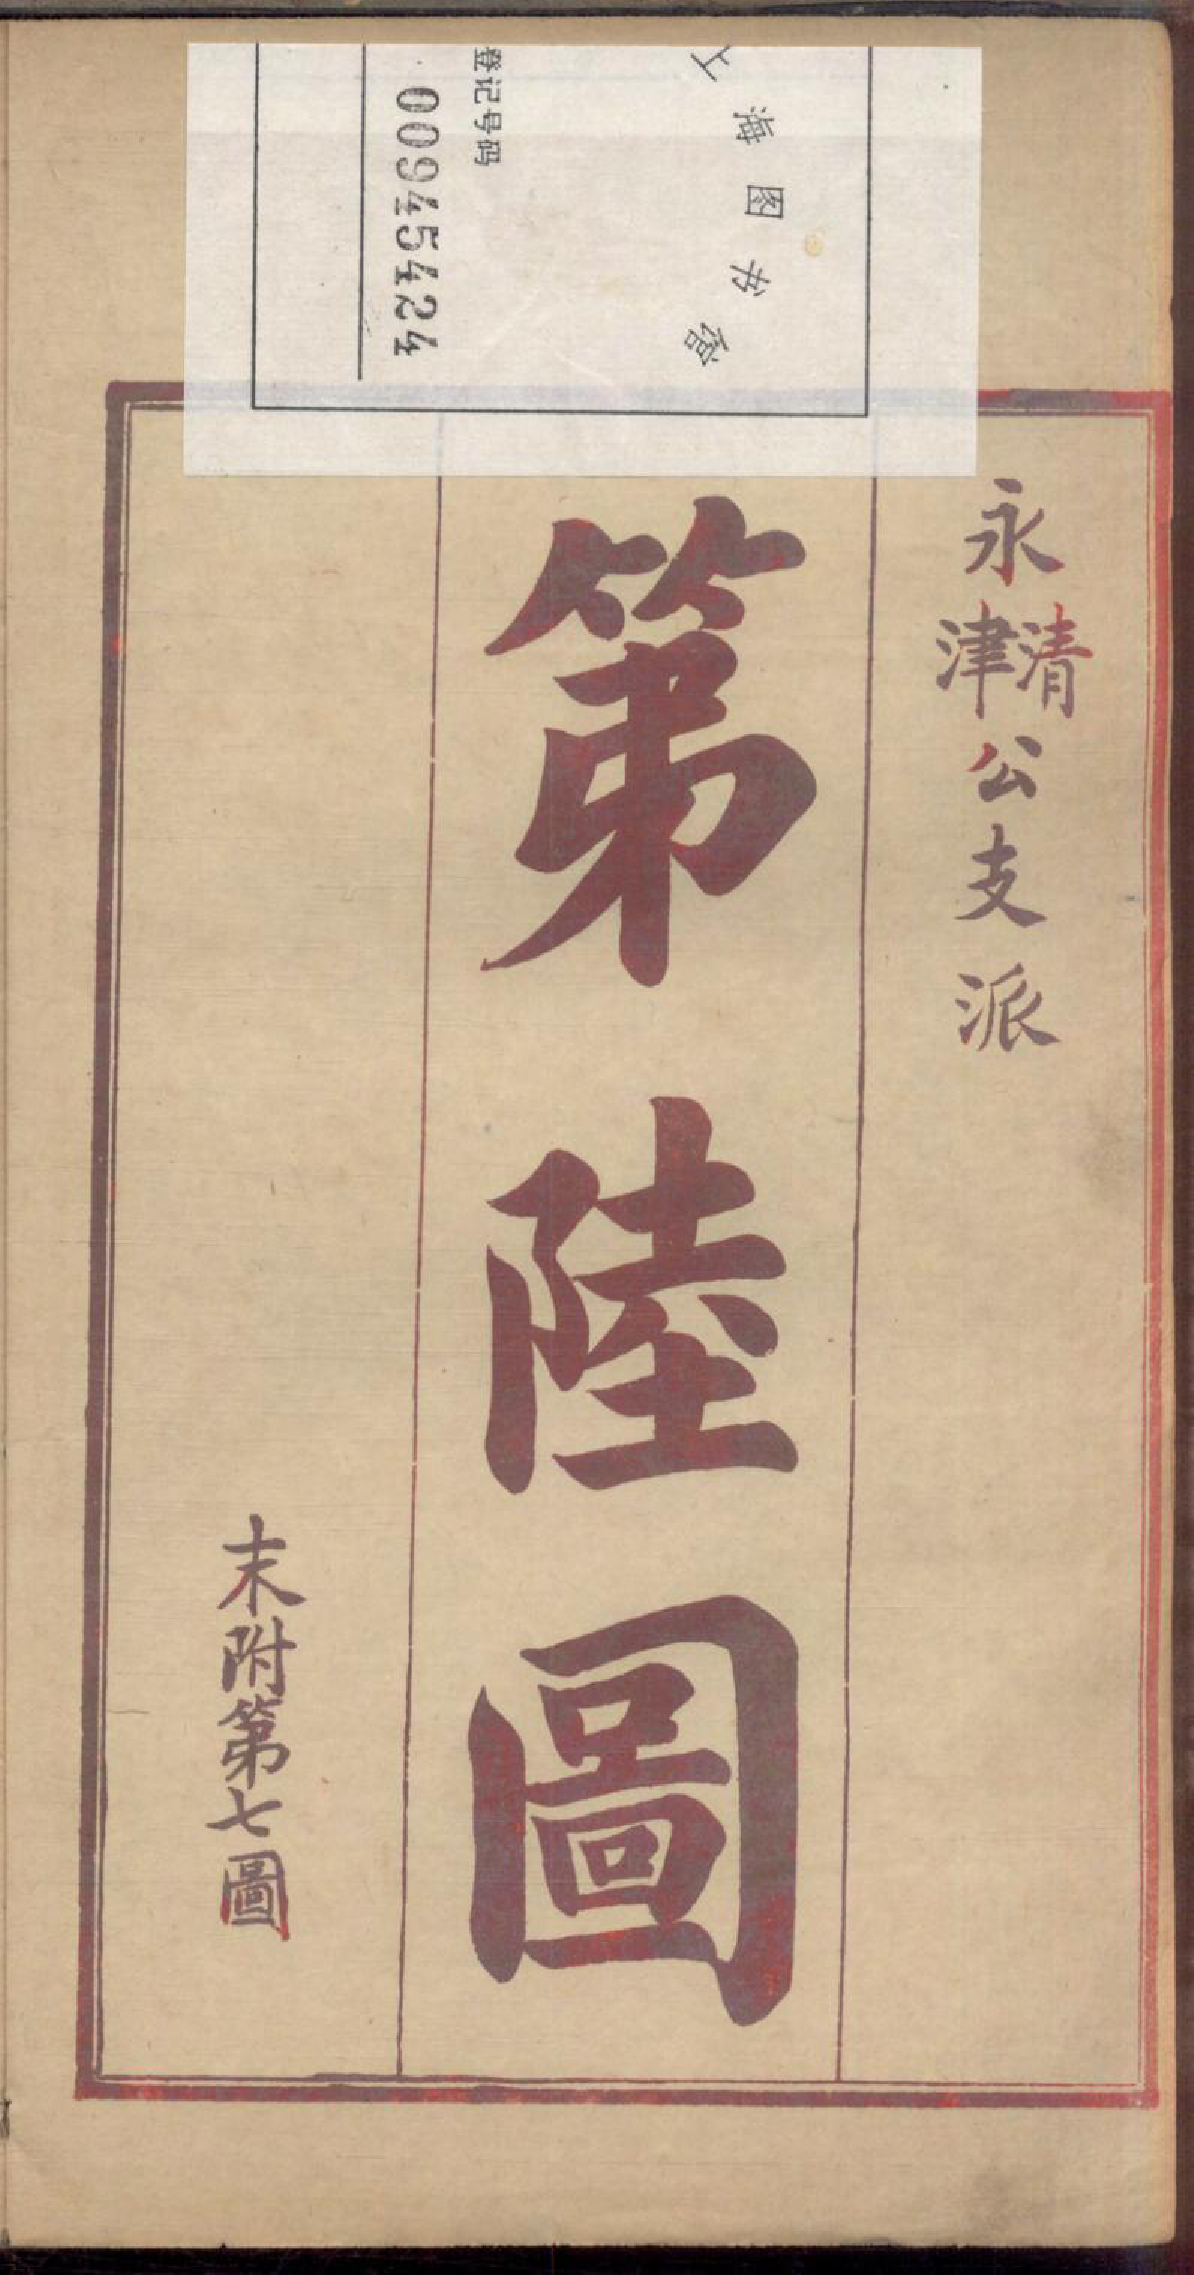 上海图书馆
登记号码
00945424
永清津公支派
第陸圖
末附第七圖